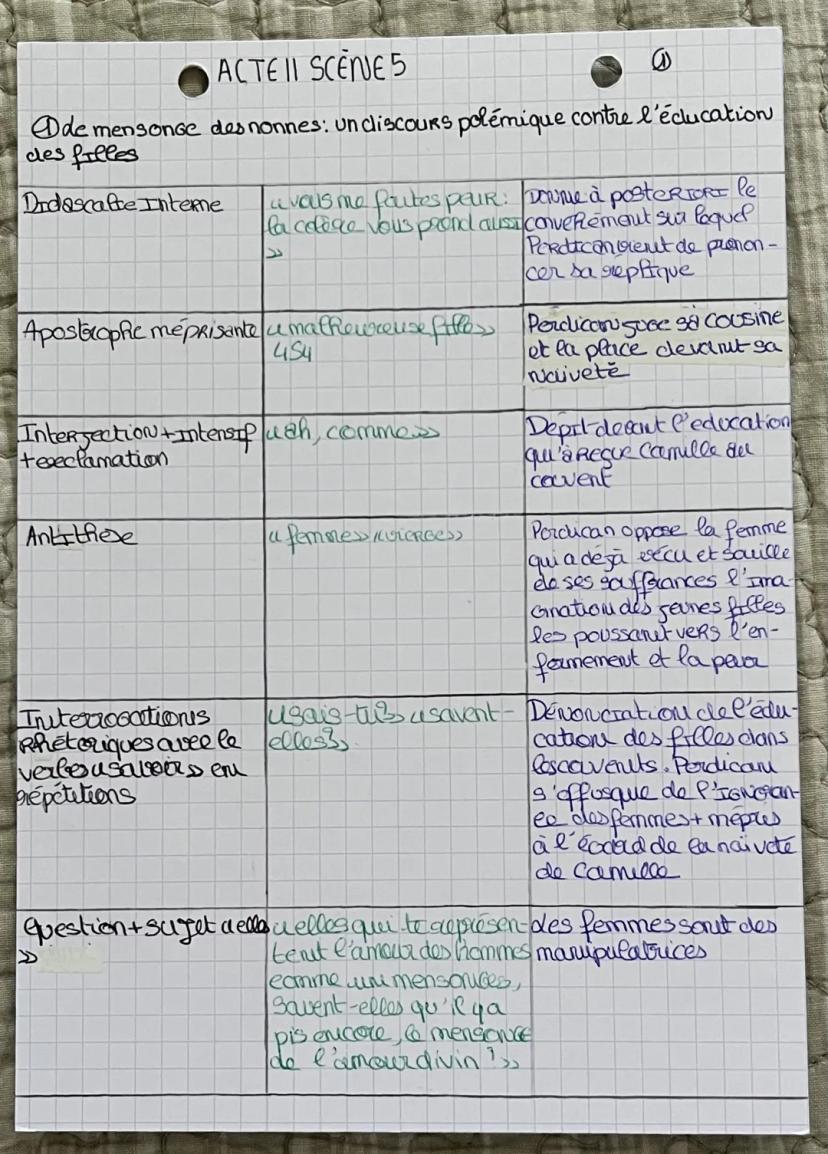 ACTE II SCÈNE 5
①
① de mensonge des nonnes : un discours polémique contre l'éducation
des filles
Didascalie Interne
« vous me faites peur :
la colère vous prend aussi
»
Donne à posteriori le
Perdican vient de pronon-
cer sa réplique
Apostrophe méprisante
« malheureuse fille »
454
Perdican juge sa cousine
et la place devant sa
naïveté
Interjection + Intensif
+ exclamation
« ah, comme »
Dépit devant l'education
qu'à reçue Camille au
couvent
Antithèse
« femme » « vierge »
Perdican oppose la femme
qui a déjà vécu et souille
de ses souffrances l'ima-
gination des jeunes filles
les poussant vers l'en-
fermement et la peur
Interrogations
Rhétoriques avec le
verbe « savoir » en
répétitions
« sais-tu » « savent-
elles »
Dénonciation de l'édu-
cation des filles dans
les couvents. Perdican
s'offusque de l'ignoran-
ce des femmes + mépris
à l'égard de la naïveté
de Camille
Question + sujet « elles
»
« elles qui te représen-
tent l'amour des hommes
comme un mensonges,
savent-elles qu'il y a
pis encore, le mensonge
de l'amour divin ? »
des femmes sont des
manipulatrices